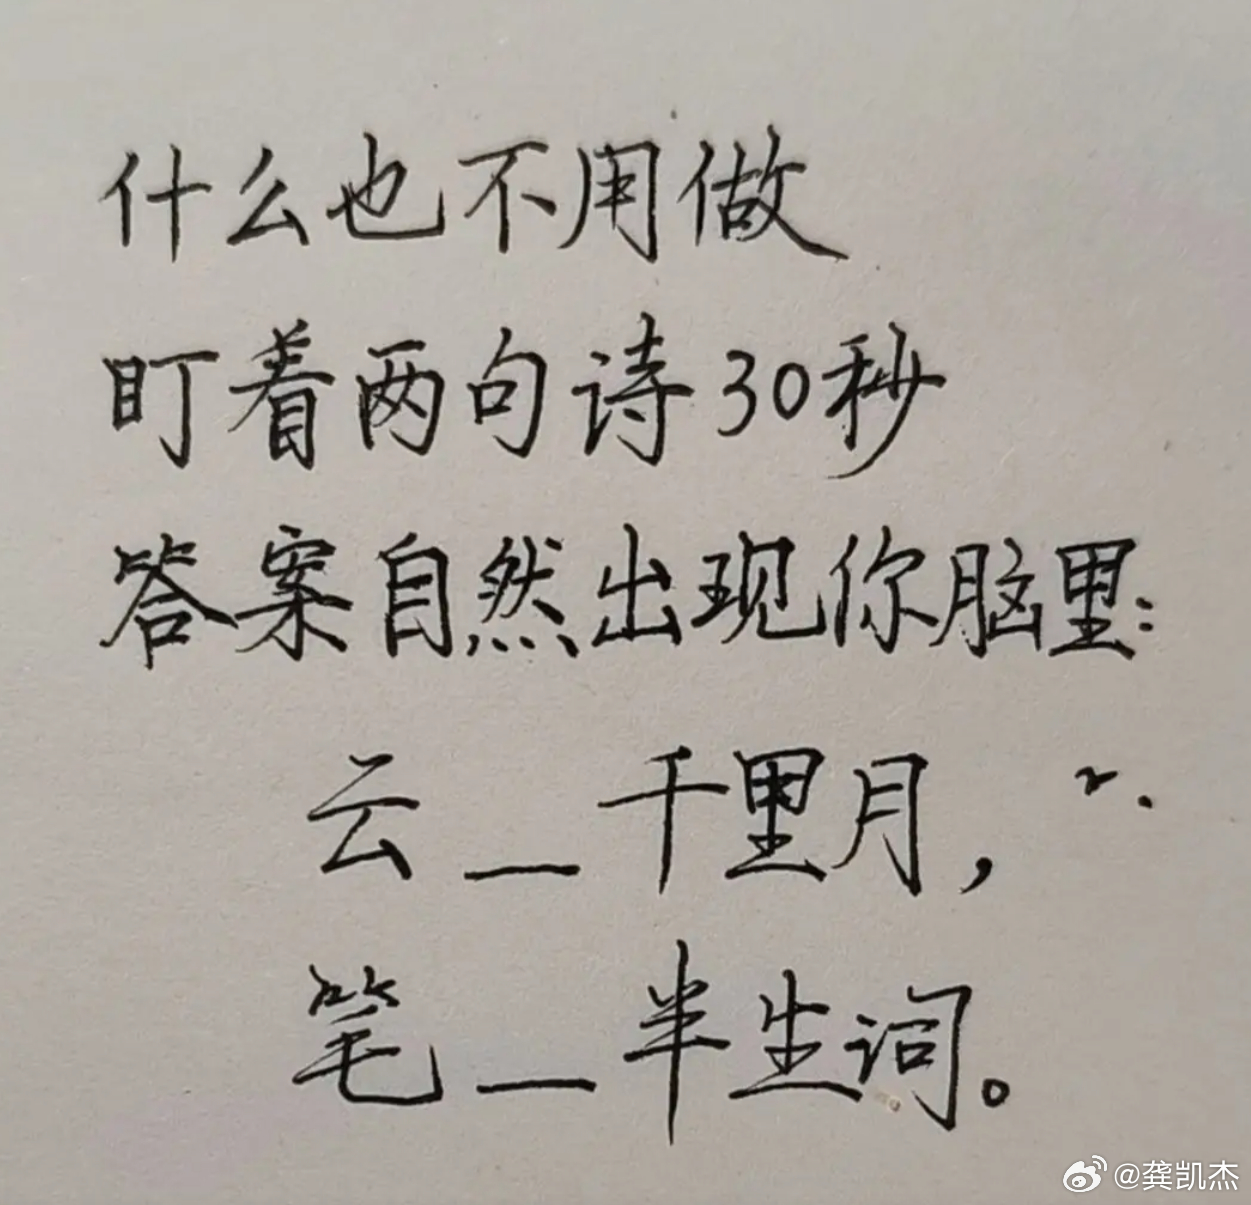 什么也不用做
盯着两句诗30秒
答案自然出现你脑里:
云_千里月,
笔_半生词。
@龚凯杰